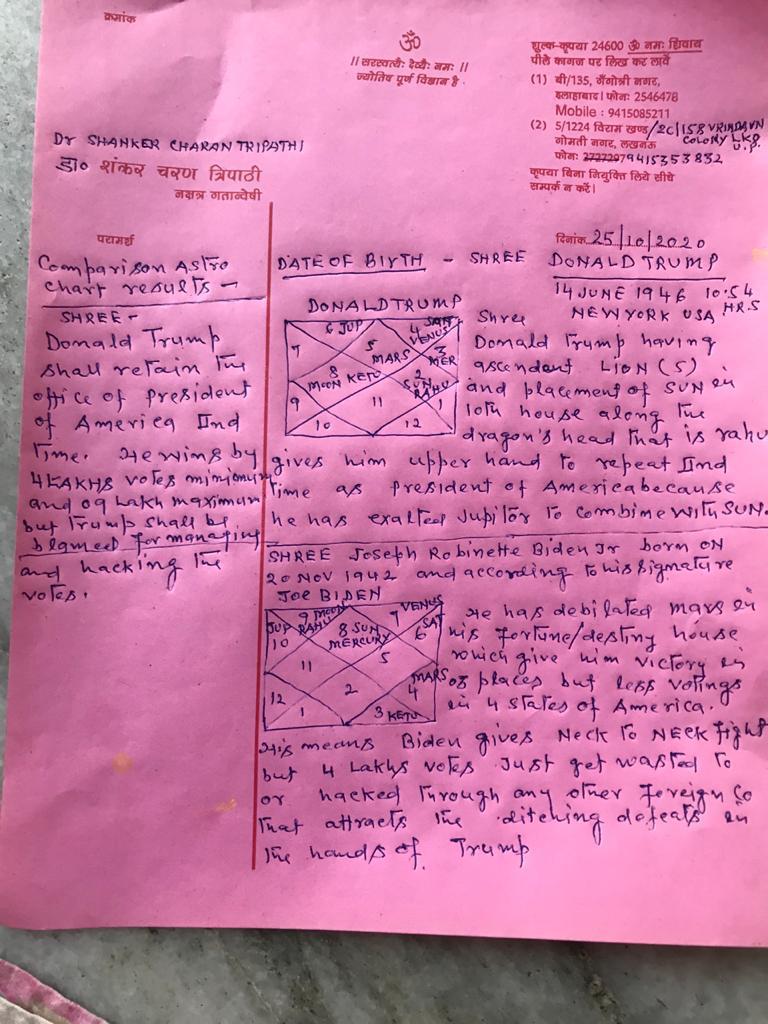 क्रमांक
ॐ
।। सरस्वत्यैः देव्यैः नमः ।।
ज्योतिष पूर्ण विज्ञान है
शुल्क-कृपया 24600 ॐ नमः शिवाय
पीले कागज पर लिख कर लावें
(1) बी/135, गँगोत्री नगर,
इलाहाबाद। फोनः 2546478
Mobile : 9415085211
(2) 5/1224 विराम खण्ड/2C/158 VRINDAVN
COLONY LKO
गोमती नगर, लखनऊ U.P.
फोनः 2727297 9415353832
कृपया बिना नियुक्ति लिये सीधे
सम्पर्क न करें।
Dr SHANKER CHARAN TRIPATHI
डा० शंकर चरण त्रिपाठी
नक्षत्र गतान्वेषी
परामर्श
दिनांक 25/10/2020
Comparison Astro
Chart results -
SHREE -
Donald Trump
shall retain the
office of president
of America IInd
time. He wins by
4 LAKHS votes minimum
and 09 Lakh maximum
but Trump shall be
blamed for managing
and hacking the
votes.
DATE OF BIRTH - SHREE DONALD TRUMP
14 JUNE 1946 10.54 HRS
NEWYORK USA
DONALD TRUMP
6 JUP
4 SAT
VENUS
7
5
MARS
3
MER
8
MOON KETU
2
SUN
RAHU
9
11
1
10
12
Shree
Donald Trump having
ascendent LION (5)
and placement of SUN in
10th house along the
dragon's head that is rahu
gives him upper hand to repeat IInd
time as president of America because
he has exalted Jupitor to combine with SUN.
SHREE Joseph Robinette Biden Jr born ON
20 NOV 1942 and according to his signature
JOE BIDEN
9 MOON
RAHU
7 VENUS
JUP
10
8 SUN
MERCURY
SAT
6
11
5
12
2
MARS
4
1
3 KETU
He has debilated mars in
his fortune/destiny house
which give him victory in
03 places but less votings
in 4 states of America.
His means Biden gives NECK TO NECK FIGHT
but 4 Lakhs votes just get wasted to
or hacked through any other foreign Co
that attracts the ditching defeats in
the hands of Trump